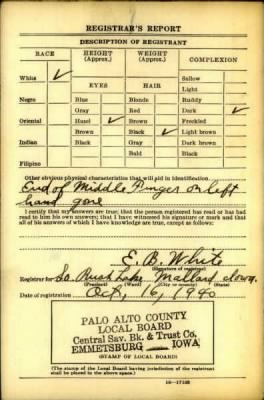 REGISTRAR'S REPORT
DESCRIPTION OF REGISTRANT
RACE HEIGHT (Approx.) WEIGHT (Approx.) COMPLEXION
White ✓ Sallow
EYES HAIR Light
Negro Blue Blonde Ruddy
Gray Red Dark ✓
Oriental Hazel ✓ Brown Freckled
Brown Black ✓ Light brown
Indian Black Gray Dark brown
Bald Black
Filipino
Other obvious physical characteristics that will aid in identification
End of Middle Finger on left
hand gone
I certify that my answers are true; that the person registered has read or has had
read to him his own answers; that I have witnessed his signature or mark and that
all of his answers of which I have knowledge are true, except as follows:
E. B. White
(Signature of registrar)
Registrar for So. Rush Lake Mallard Iowa.
(Precinct) (Ward) (City or county) (State)
Date of registration Oct, 16, 1940
PALO ALTO COUNTY
LOCAL BOARD
Central Sav. Bk. & Trust Co.
EMMETSBURG IOWA
(STAMP OF LOCAL BOARD)
(The stamp of the Local Board having jurisdiction of the registrant
shall be placed in the above space.)
16—17105